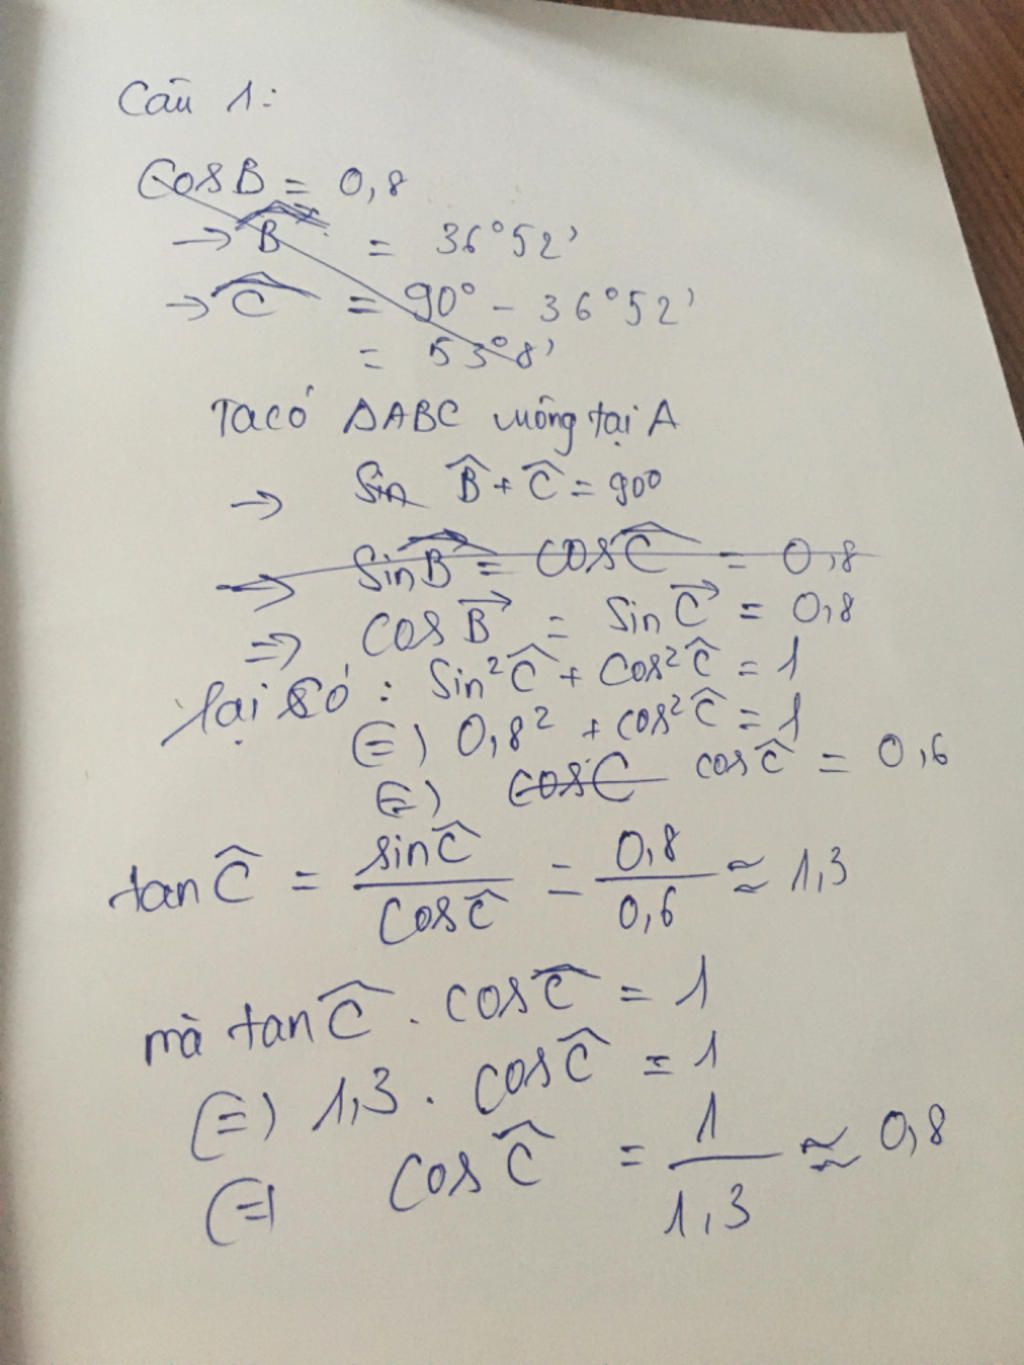 Câu 1:
CosB = 0,8
→ B̂ = 36°52'
→ Ĉ = 90° - 36°52'
= 53°8'
Ta có ΔABC vuông tại A
→ Sin B̂ + Ĉ = 90°
→ Sin B̂ = cos Ĉ = 0,8
=> cos B⃗ = sin C⃗ = 0,8
lại có : Sin²Ĉ + cos²Ĉ = 1
(=) 0,8² + cos²Ĉ = 1
(=) cosC cosĈ = 0,6
tan Ĉ = sinĈ / cosĈ = 0,8 / 0,6 ≈ 1,3
mà tan Ĉ . cos Ĉ = 1
(=) 1,3 . cos Ĉ = 1
(=) cos Ĉ = 1 / 1,3 ≈ 0,8